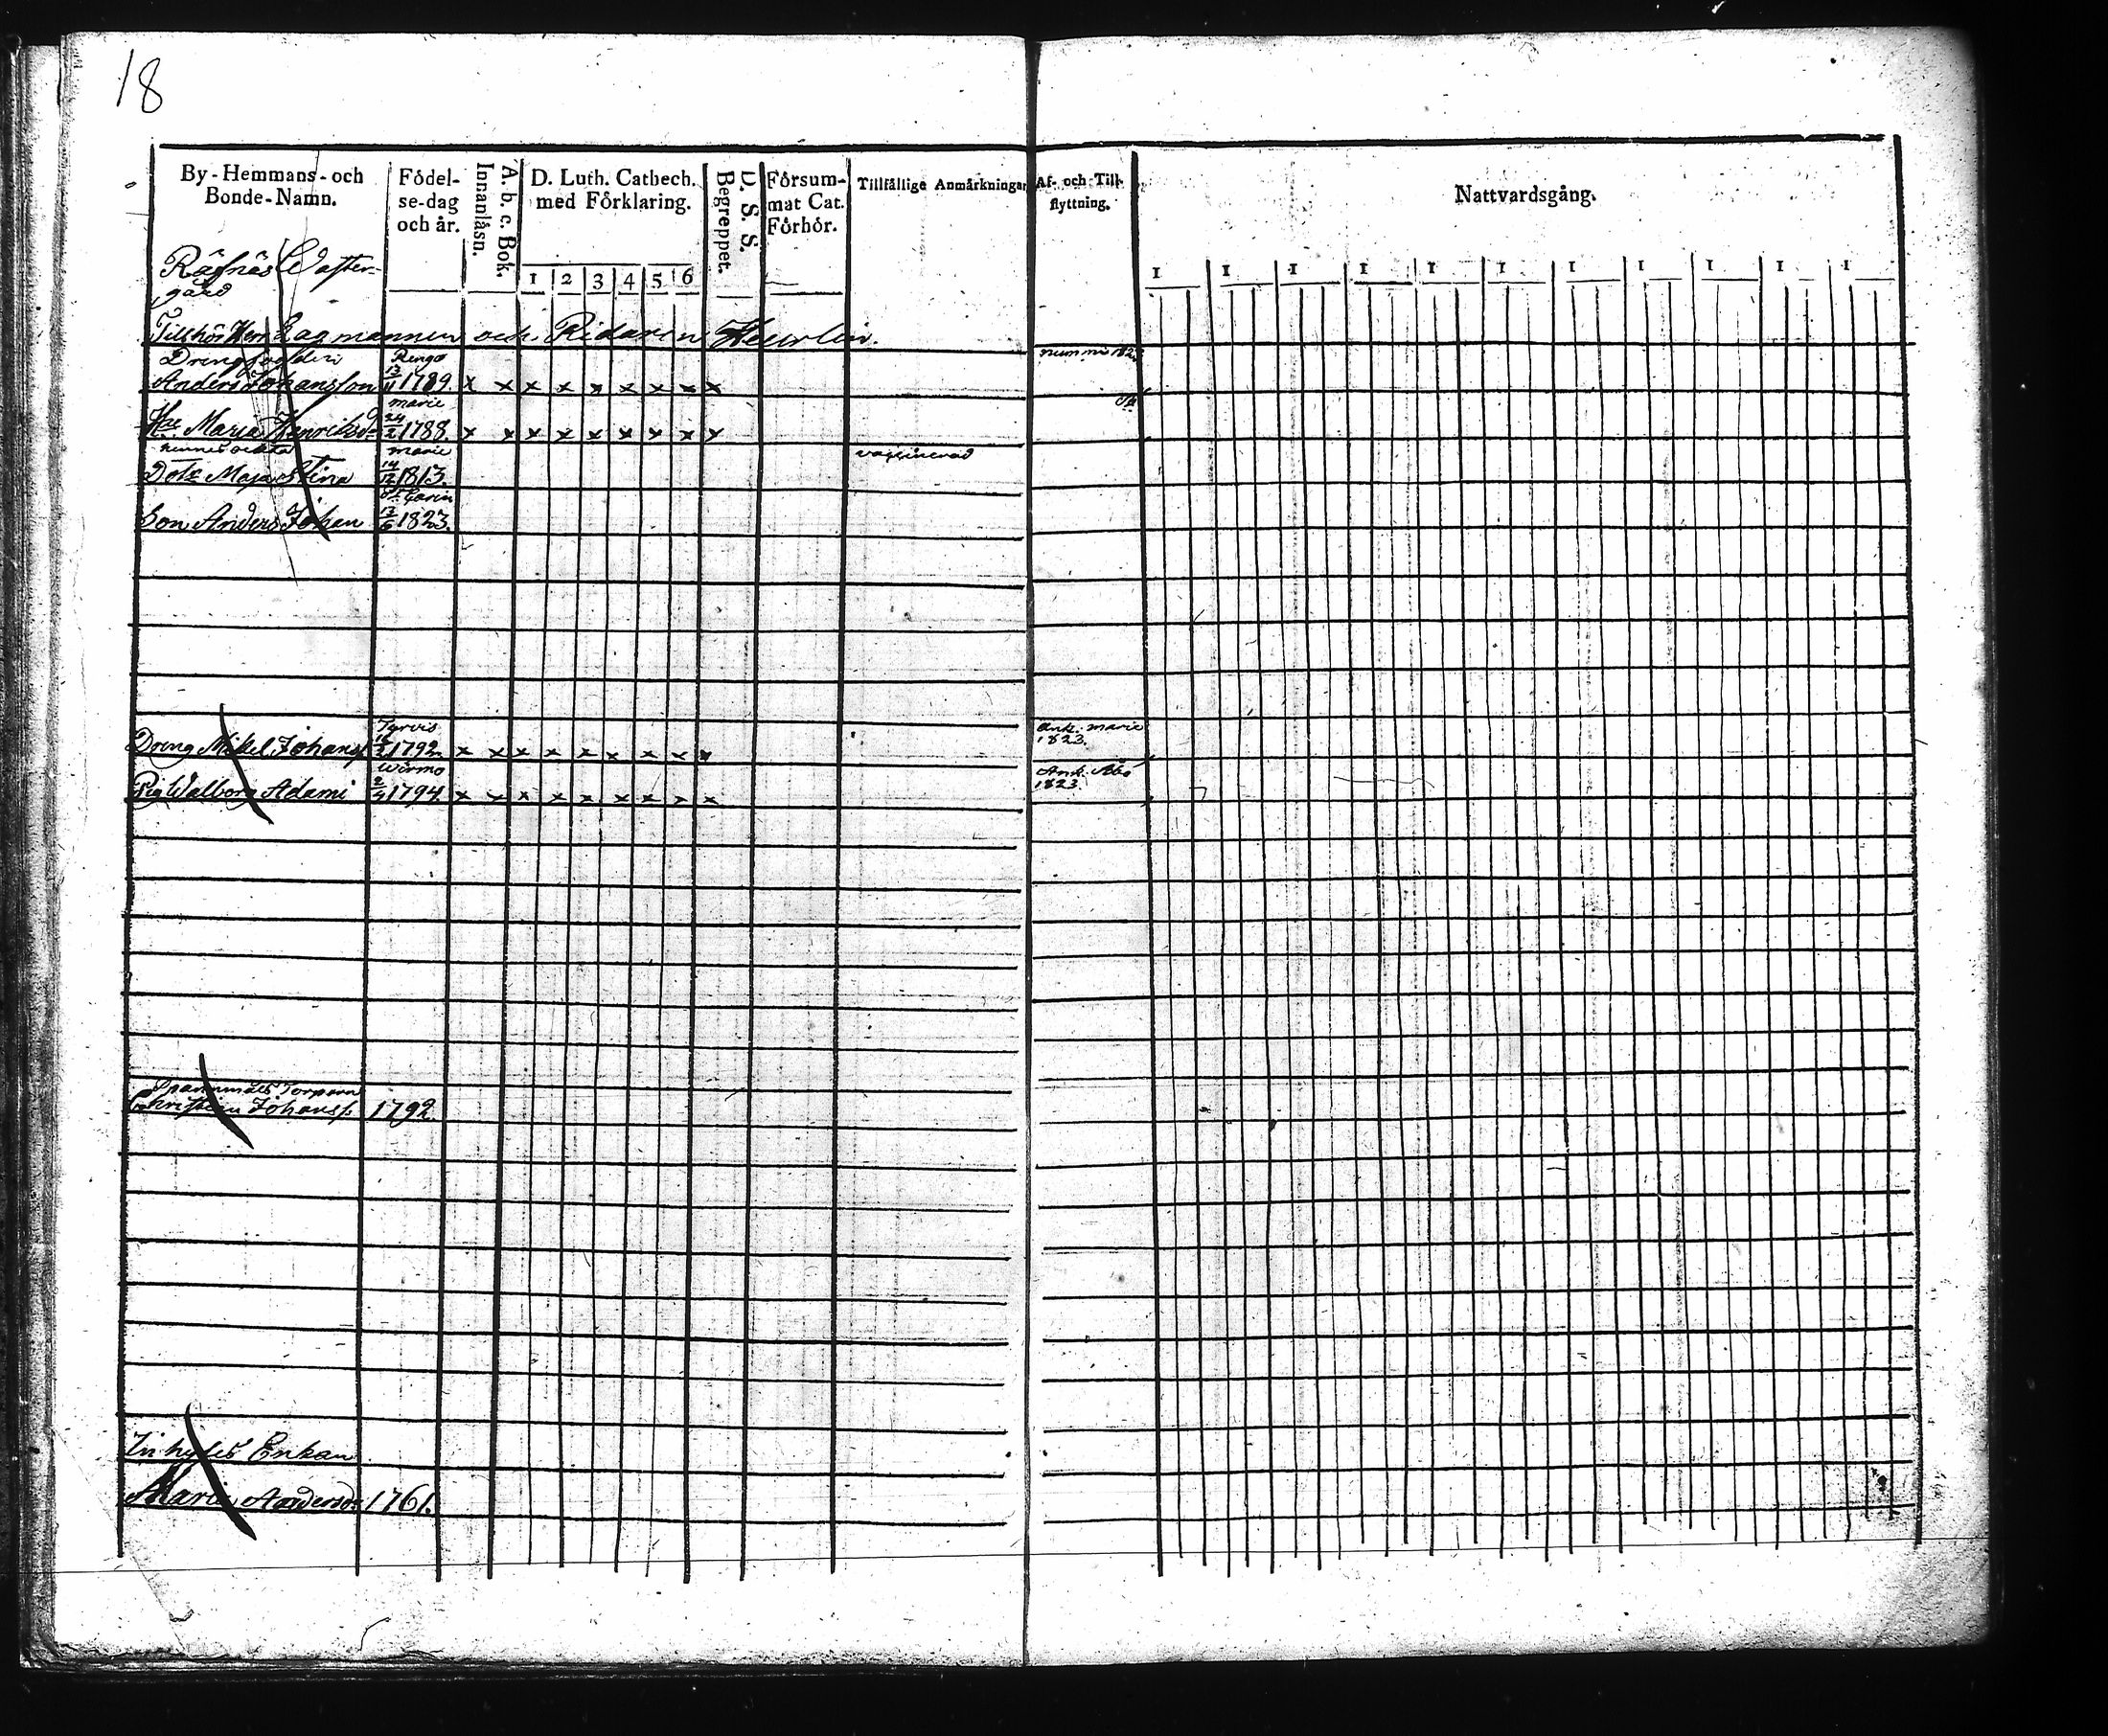 18
By-Hemmans-och Bonde-Namn.
Födel-se-dag och år.
Innanläsn.
A. b. c. Bok.
D. Luth. Cathech. med Förklaring.
1 2 3 4 5 6
D. S. S. Begreppet.
Försum-mat Cat. Förhör.
Tillfällige Anmärkningar
Af- och Till-flyttning.
Nattvardsgång.
1 1 1 1 1 1 1 1 1 1 1
Räfnäs Waster-
gård
Tillhör Herr Lagmannen och Ridaren Heurlin.
Drengfogden Rengo nummi
Anders Johansson 13/11 1789. x x x x x x x x x
marie
Hu Maria Henriksdr 24/2 1788. x x x x x x x x x
hennes oekta marie vaccinerad
Dotr Maja Stina 14/12 1813.
St. Carin
Son Anders Johan 13/6 1823.
Tyrvis Ank. marie
Dreng Mikel Johanss 1792 x x x x x x x x x 1823.
Wirmo Ank. Åbo
Pig Walborg Adami 2/4 1794. x x x x x x x x x 1823.
Spannmåls Torparn
Christian Johanss. 1792.
Inhyses Enkan
Maria Andersdr 1761.